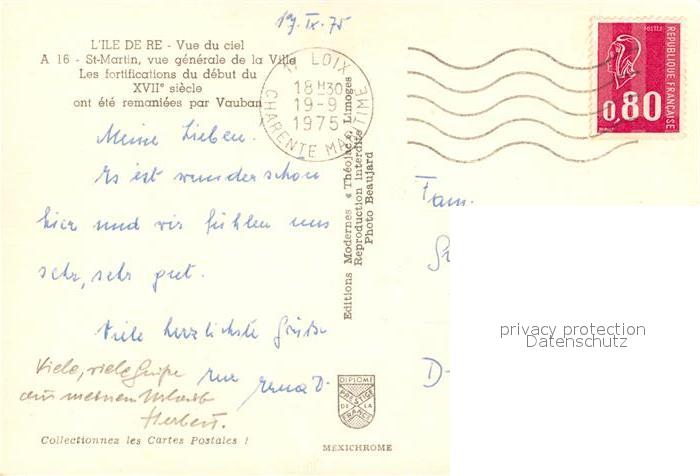 19. IX. 75
L'ILE DE RE - Vue du ciel
A 16 - St-Martin, vue générale de la Ville
Les fortifications du début du
XVIIe siècle
ont été remaniées par Vauban
17 LOIX
18 H30
19-9
1975
CHARENTE MARITIME
POSTES
REPUBLIQUE FRANÇAISE
0,80
Meine Lieben.
Es ist wunderschön
hier und wir fühlen uns
sehr, sehr gut.
Viele herzlichste Grüße
Erna D.
Viele, viele Grüße
aus meinem Urlaub
Herbert.
Collectionnez les Cartes Postales !
Editions Modernes « Théojac », Limoges
Reproduction interdite
Photo Beaujard
DIPLOME
PRESTIGE
DE LA
FRANCE
MEXICHROME
Fam.
D-
privacy protection
Datenschutz